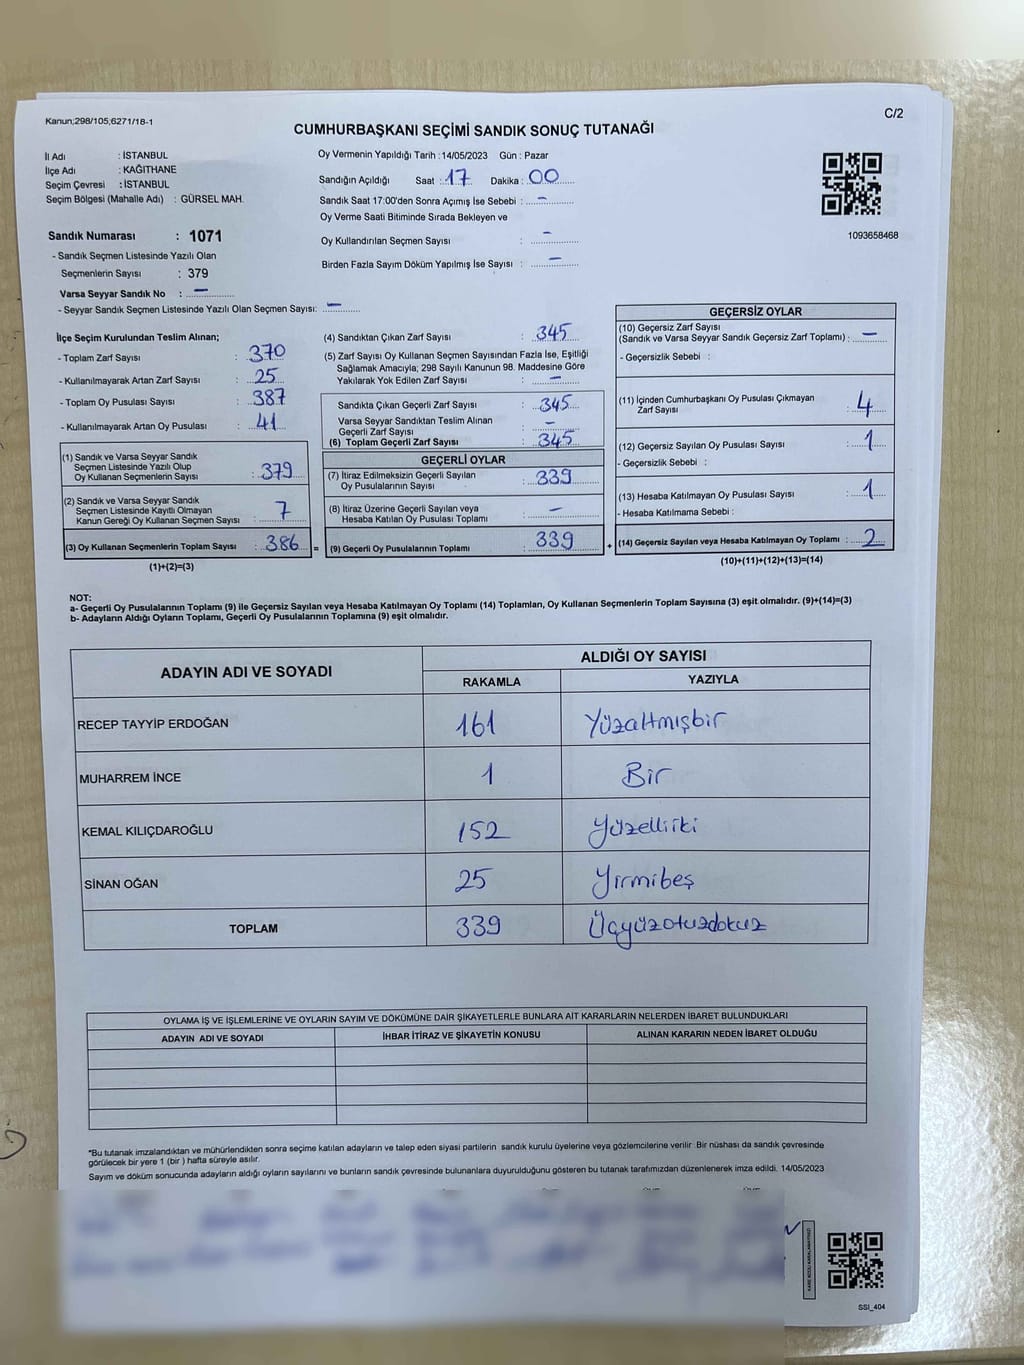 Kanun;298/105,6271/18-1
C/2
CUMHURBAŞKANI SEÇİMİ SANDIK SONUÇ TUTANAĞI
İl Adı : İSTANBUL
İlçe Adı : KAĞITHANE
Seçim Çevresi : İSTANBUL
Seçim Bölgesi (Mahalle Adı) : GÜRSEL MAH.
Oy Vermenin Yapıldığı Tarih : 14/05/2023 Gün : Pazar
Sandığın Açıldığı Saat : 17 Dakika : 00
Sandık Saat 17:00'den Sonra Açımış İse Sebebi : –
Oy Verme Saati Bitiminde Sırada Bekleyen ve
Oy Kullandırılan Seçmen Sayısı : –
Birden Fazla Sayım Döküm Yapılmış İse Sayısı : –
1093658468
Sandık Numarası : 1071
- Sandık Seçmen Listesinde Yazılı Olan
Seçmenlerin Sayısı : 379
Varsa Seyyar Sandık No : –
- Seyyar Sandık Seçmen Listesinde Yazılı Olan Seçmen Sayısı: –
İlçe Seçim Kurulundan Teslim Alınan;
- Toplam Zarf Sayısı : 370
- Kullanılmayarak Artan Zarf Sayısı : 25
- Toplam Oy Pusulası Sayısı : 387
- Kullanılmayarak Artan Oy Pusulası : 41
(1) Sandık ve Varsa Seyyar Sandık
Seçmen Listesinde Yazılı Olup
Oy Kullanan Seçmenlerin Sayısı : 379
(2) Sandık ve Varsa Seyyar Sandık
Seçmen Listesinde Kayıtlı Olmayan
Kanun Gereği Oy Kullanan Seçmen Sayısı : 7
(3) Oy Kullanan Seçmenlerin Toplam Sayısı : 386 =
(1)+(2)=(3)
(4) Sandıktan Çıkan Zarf Sayısı : 345
(5) Zarf Sayısı Oy Kullanan Seçmen Sayısından Fazla İse, Eşitliği
Sağlamak Amacıyla; 298 Sayılı Kanunun 98. Maddesine Göre
Yakılarak Yok Edilen Zarf Sayısı : –
Sandıkta Çıkan Geçerli Zarf Sayısı : 345
Varsa Seyyar Sandıktan Teslim Alınan
Geçerli Zarf Sayısı : –
(6) Toplam Geçerli Zarf Sayısı : 345
GEÇERLİ OYLAR
(7) İtiraz Edilmeksizin Geçerli Sayılan
Oy Pusulalarının Sayısı : 339
(8) İtiraz Üzerine Geçerli Sayılan veya
Hesaba Katılan Oy Pusulası Toplamı : –
(9) Geçerli Oy Pusulalarının Toplamı : 339 +
GEÇERSİZ OYLAR
(10) Geçersiz Zarf Sayısı
(Sandık ve Varsa Seyyar Sandık Geçersiz Zarf Toplamı) : –
- Geçersizlik Sebebi :
(11) İçinden Cumhurbaşkanı Oy Pusulası Çıkmayan
Zarf Sayısı : 4
(12) Geçersiz Sayılan Oy Pusulası Sayısı : 1
- Geçersizlik Sebebi :
(13) Hesaba Katılmayan Oy Pusulası Sayısı : 1
- Hesaba Katılmama Sebebi :
(14) Geçersiz Sayılan veya Hesaba Katılmayan Oy Toplamı : 2
(10)+(11)+(12)+(13)=(14)
NOT:
a- Geçerli Oy Pusulalarının Toplamı (9) ile Geçersiz Sayılan veya Hesaba Katılmayan Oy Toplamı (14) Toplamları, Oy Kullanan Seçmenlerin Toplam Sayısına (3) eşit olmalıdır. (9)+(14)=(3)
b- Adayların Aldığı Oyların Toplamı, Geçerli Oy Pusulalarının Toplamına (9) eşit olmalıdır.
ADAYIN ADI VE SOYADI
ALDIĞI OY SAYISI
RAKAMLA YAZIYLA
RECEP TAYYİP ERDOĞAN 161 Yüzaltmışbir
MUHARREM İNCE 1 Bir
KEMAL KILIÇDAROĞLU 152 Yüzelliiki
SİNAN OĞAN 25 Yirmibeş
TOPLAM 339 Üçyüzotuzdokuz
OYLAMA İŞ VE İŞLEMLERİNE VE OYLARIN SAYIM VE DÖKÜMÜNE DAİR ŞİKAYETLERLE BUNLARA AİT KARARLARIN NELERDEN İBARET BULUNDUKLARI
ADAYIN ADI VE SOYADI İHBAR İTİRAZ VE ŞİKAYETİN KONUSU ALINAN KARARIN NEDEN İBARET OLDUĞU
*Bu tutanak imzalandıktan ve mühürlendikten sonra seçime katılan adayların ve talep eden siyasi partilerin sandık kurulu üyelerine veya gözlemcilerine verilir. Bir nüshası da sandık çevresinde
görülecek bir yere 1 (bir) hafta süreyle asılır.
Sayım ve döküm sonucunda adayların aldığı oyların sayılarını ve bunların sandık çevresinde bulunanlara duyurulduğunu gösteren bu tutanak tarafımızdan düzenlenerek imza edildi. 14/05/2023
SSI_404